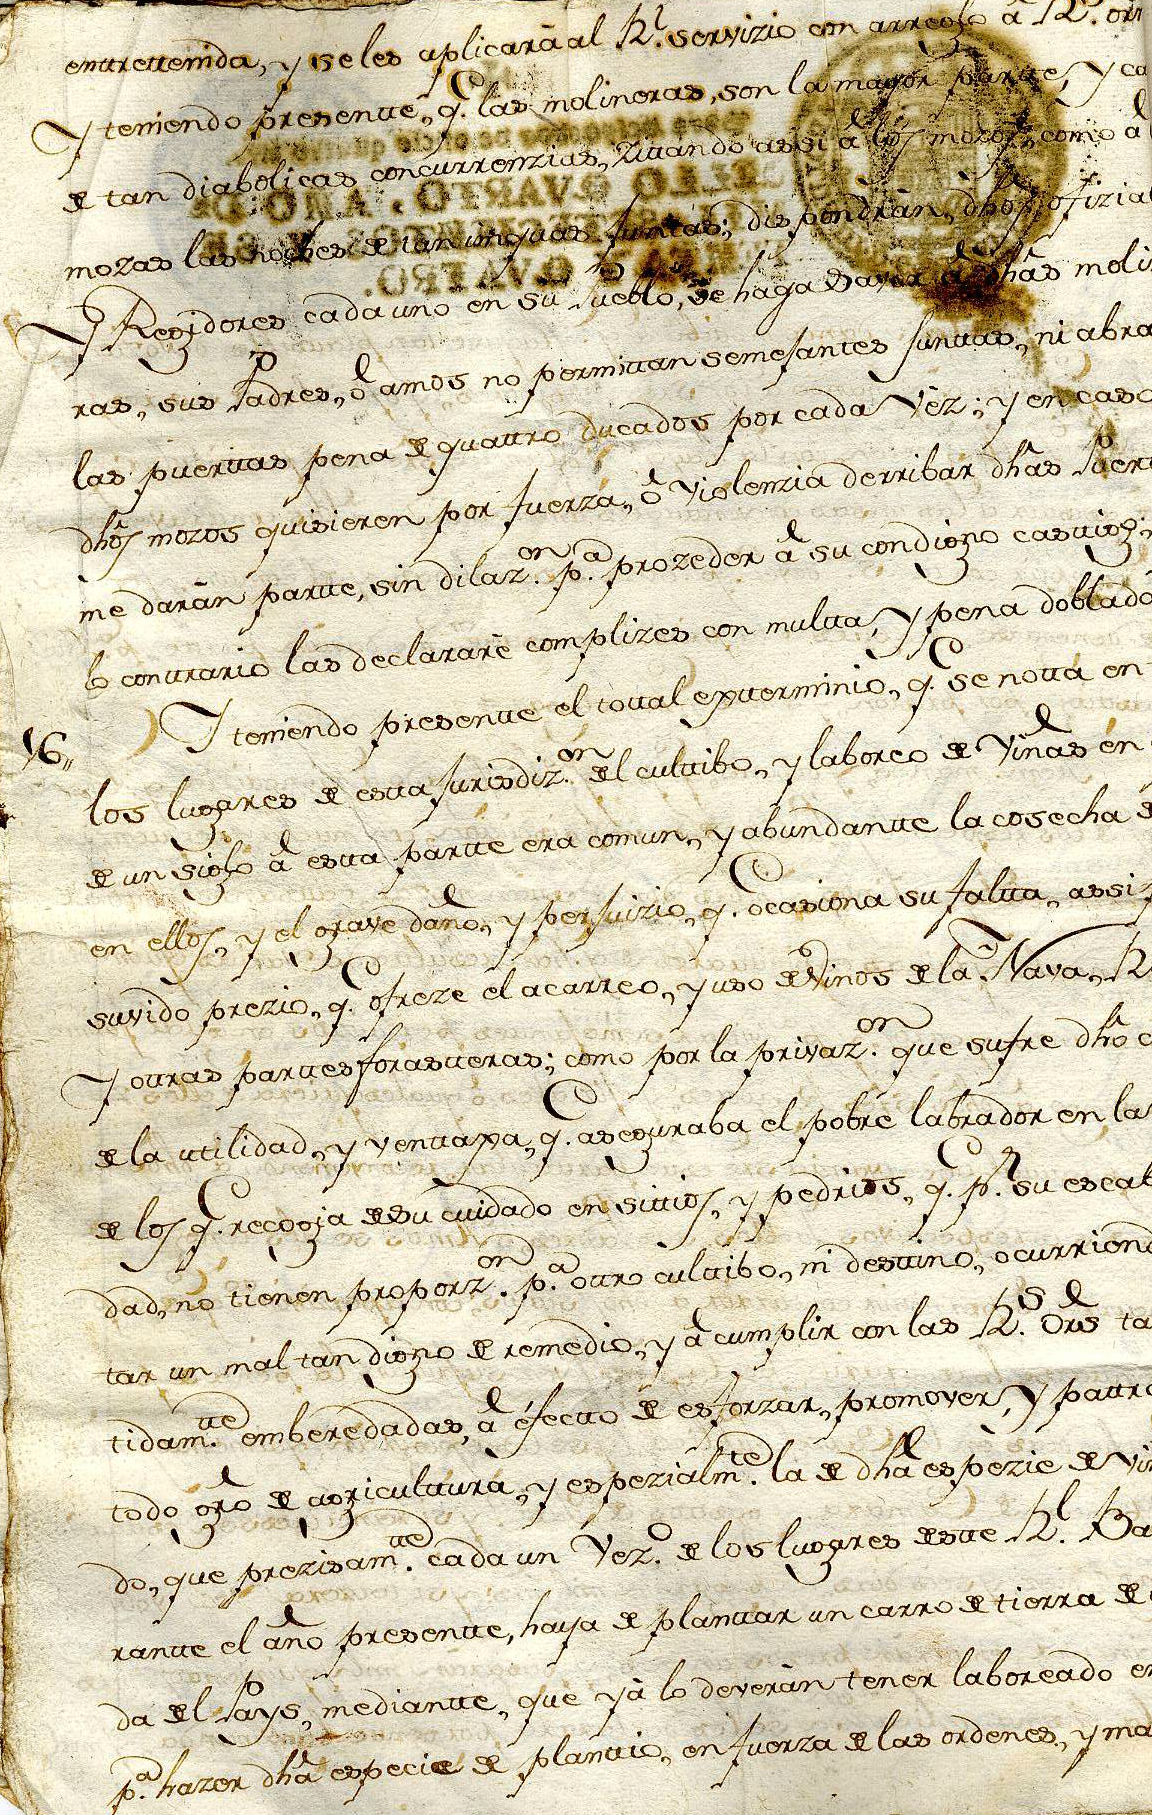 entrettenida, y seles aplicarà al Rl. servizio con arreglo â Rs. or
Y teniendo presentte, q. las molineras, son la mayor partte, y ca
de tan diabolicas concurrenzias, zittando assi â los mozos, como â
mozas las noches de tan iniquas Juntas; dispondràn, dhos ofizial
Y Regidores cada uno en su Pueblo, se haga saver â dhas moli
ras, sus Padres, ô amos no permittan semejantes Junttas, ni abra
las puerttas pena de quattro ducados por cada Vez; y en caso
dhos mozos quisieren por fuerza, ô violenzia derribar dhas Puert
me daràn partte, sin dilazon. pa. prozeder â su condigno casttigo;
lo conttrario las declararè complizes con multta, y pena doblada
16,, Y teniendo presentte el tottal extterminio, q. se notta en
los lugares de estta Jurisdizon. del culttibo, y laboreo de Viñas en
de un siglo â estta partte era comun, y abundantte la cosecha de
en ellos, y el grave daño, y perjuizio, q. ocasiona su faltta, assi p
suvido prezio, q. ofreze el acarreo, y uso de Vinos de la Nava, R
Y ottras parttes forastteras; como por la privazon. que sufre dho c
de la utilidad, y venttaxa, q. aseguraba el pobre labrador en la
de los q. recogia de su cuidado en sittios, y pedrisos, q. pr. su escab
dad, no tienen proporzon. pa. ottro culttibo, ni desttino, ocurriend
tar un mal tan digno de remedio, y â cumplir con las Rs. Ors ta
tidamtte. emberedadas, â efectto de esforzar, promover, Y pattro
todo gro de agriculttura, y espezialmte. la de dha espezie de Vi
do, que prezisamtte. cada un Vezo. de los lugares destte Rl. Ba
rantte el año presentte, haya de planttar un carro de tierra de
da del Pays, mediantte, que yà lo deveràn tener laboreado en
pa. hazer dha especie de planttio, en fuerza de las ordenes, y ma